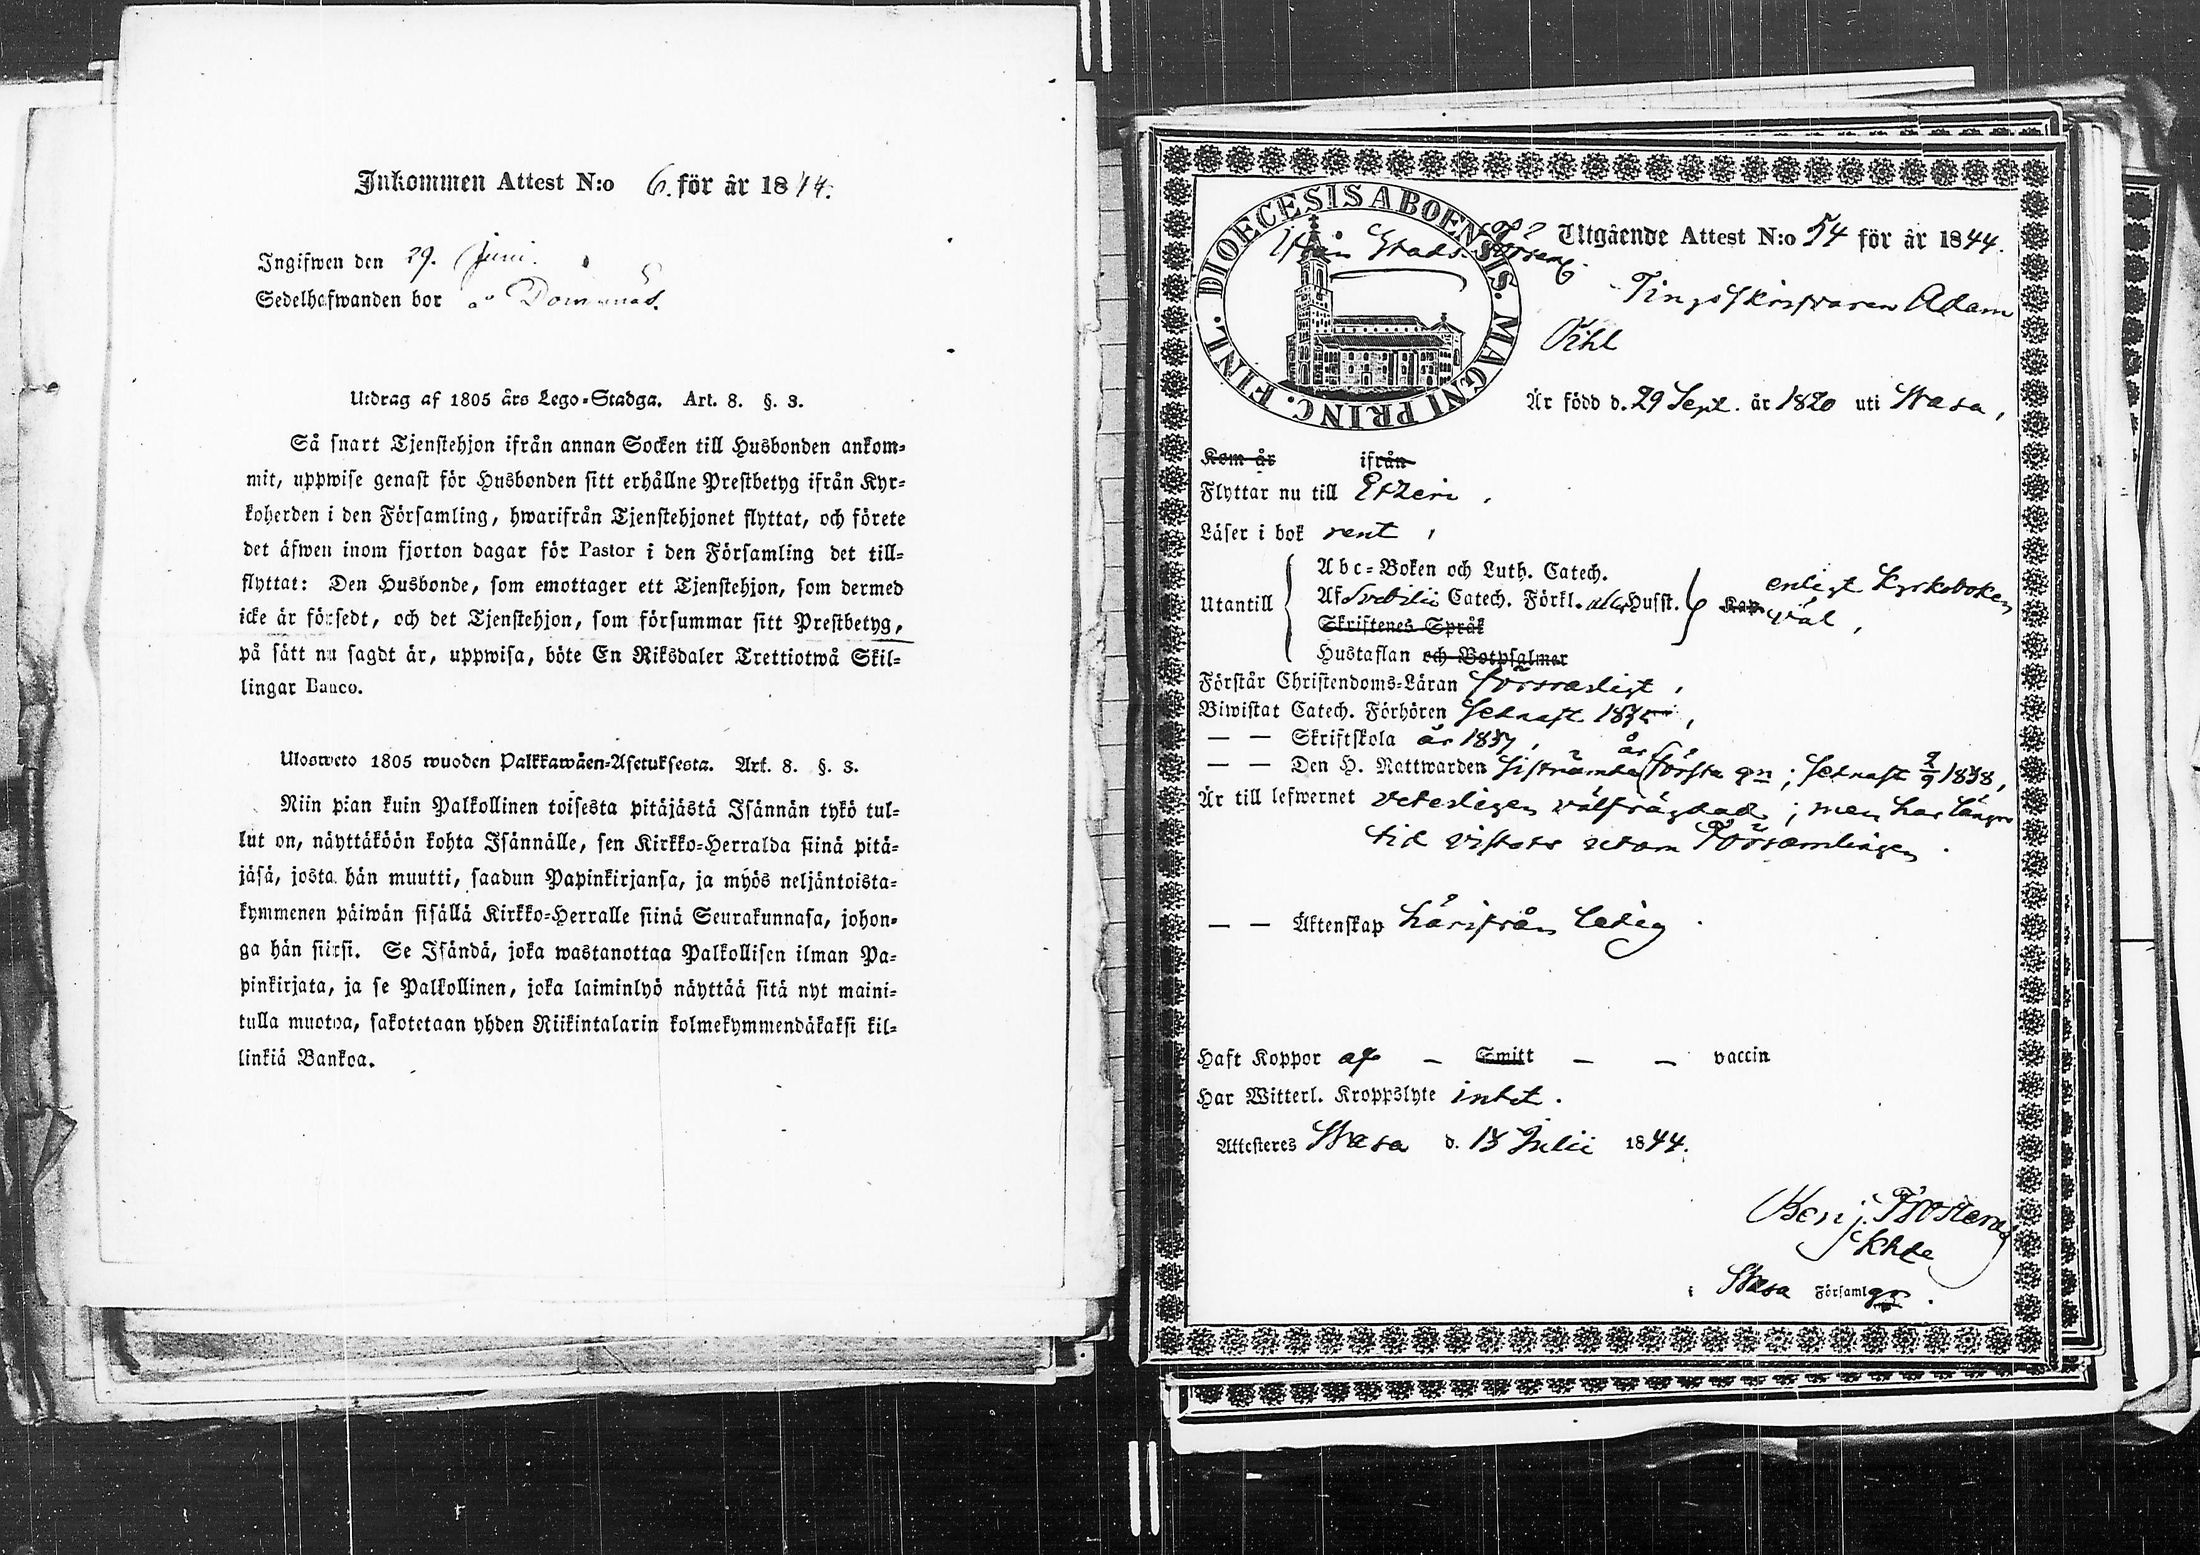 Inkommen Attest N:o 6. för år 1844.
Ingifwen den 29. Juni.
Sedelhafwanden bor
Utdrag af 1805 års Lego-Stadga. Art. 8. §. 3.
Så snart Tjenstehjon ifrån annan Socken till Husbonden ankom-
mit, uppwise genast för Husbonden sitt erhållne Prestbetyg ifrån Kyr-
koherden i den Församling, hwarifrån Tjenstehjonet flyttat, och förete
det äfwen inom fjorton dagar för Pastor i den Församling det till-
flyttat: Den Husbonde, som emottager ett Tjenstehjon, som dermed
icke är försedt, och det Tjenstehjon, som försummar sitt Prestbetyg,
på sätt nu sagdt är, uppwisa, böte En Riksdaler Trettiotwå Skil-
lingar Banco.
Ulosweto 1805 wuoden Palkkawäen-Asetuksesta. Art. 8. §. 3.
Niin pian kuin Palkollinen toisesta pitäjästä Isännän tykö tul-
lut on, näyttäköön kohta Isännälle, sen Kirkko-Herralda siinä pitä-
jäsä, josta hän muutti, saadun Papinkirjansa, ja myös neljäntoista-
kymmenen päiwän sisällä Kirkko-Herralle siinä Seurakunnasa, johon-
ga hän siirsi. Se Isändä, joka wastanottaa Palkollisen ilman Pa-
pinkirjata, ja se Palkollinen, joka laiminlyö näyttää sitä nyt maini-
tulla muotoa, sakotetaan yhden Riikintalarin kolmekymmendäkaksi kil-
linkiä Bankoa.
DIOECESIS ABOENSIS. MAGNI PRINC. FINL.
Utgående Attest N:o 54 för år 1844.
Adam
Pihl
Är född d. 29 Sept. år 1820 uti Wasa,
Kom år ifrån
Flyttar nu till Etzeri,
Läser i bok rent,
Utantill
Abc-Boken och Luth. Catech.
Af Svebilii Catech. Förkl. Husst.
Skriftenes Språk
Hustaflan och Botpsalmer
enligt Kyrkoboken
väl,
Förstår Christendoms-Läran försvarligt,
Biwistat Catech. Förhören sednast
— — Skriftskola år 1837,
— — Den H. Nattwarden första gn; sednast 2/9 1838,
Är till lefwernet veterligen välfrägdad; men har längre
tid vistats utom Församlingen.
— — Äktenskap härifrån ledig.
Haft Koppor af — Smitt — — vaccin
Har Witterl. Kroppslyte intet.
Attesteres Wasa d. 18 Julii 1844.
Benj. Frosterus
Khde
i Wasa Församlgr.